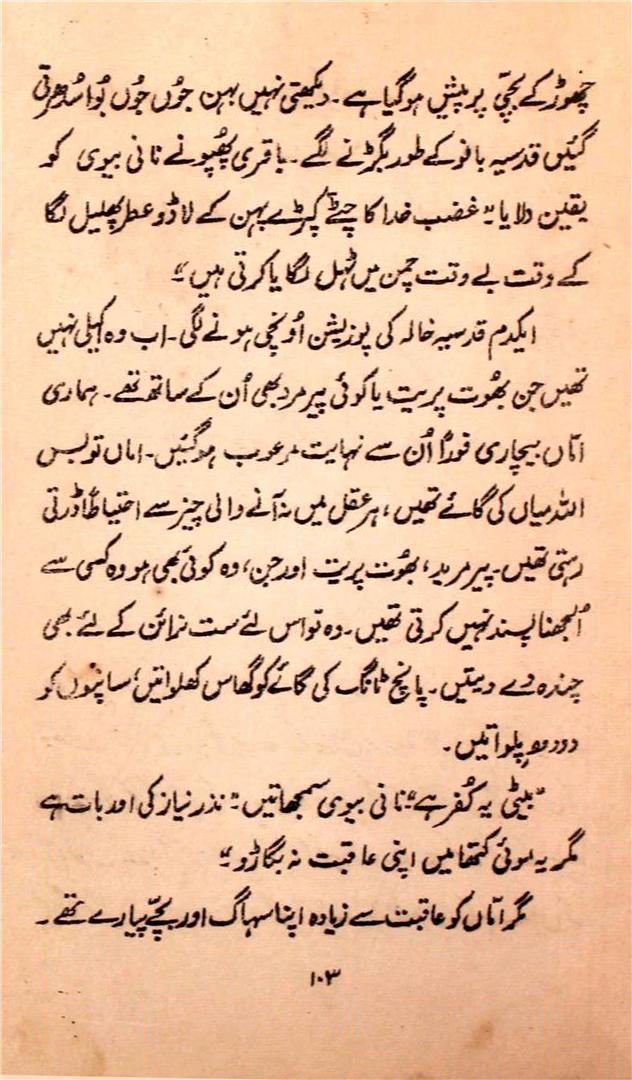 چھوڑ کے بچّی پر پیش ہو گیا ہے۔ دیکھتی نہیں بہن جوُں جوُں بُوا سُدھرتی
گئیں قدسیہ بانو کے طور بگڑنے لگے۔ باقری پھُپو نے نانی بیوی کو
یقین دلایا۔ "غضب خدا کا چٹے کپڑے پہن کے لاڈو عطر پھلیل لگا
کے وقت بے وقت چمن میں ٹہل لگایا کرتی ہیں۔"
ایکدم قدسیہ خالہ کی پوزیشن اوُنچی ہونے لگی۔ اب وہ اکیلی نہیں
تھیں جن بھُوت پریت یا کوئی پیر مرد بھی اُن کے ساتھ تھے۔ ہماری
امّاں بیچاری فوراً اُن سے نہایت مرعوب ہو گئیں۔ اماں تو بس
اللہ میاں کی گائے تھیں، ہر عقل میں نہ آنے والی چیز سے احتیاطاً ڈرتی
رہتی تھیں۔ پیر مرید، بھُوت پریت اور جن، وہ کوئی بھی ہو وہ کسی سے
اُلجھنا پسند نہیں کرتی تھیں۔ وہ تو اس لئے ست نرائن کے لئے بھی
چندہ دے دیتیں۔ پانچ ٹانگ کی گائے کو گھاس کھلواتیں، سانپوں کو
دودھ پلواتیں۔
"بیٹی یہ کُفر ہے" نانی بیوی سمجھاتیں۔ "نذر نیاز کی اور بات ہے
مگر یہ موئی کتھا میں اپنی عاقبت نہ بگاڑو۔"
مگر امّاں کو عاقبت سے زیادہ اپنا سہاگ اور بچّے پیارے تھے۔
۱۰۳